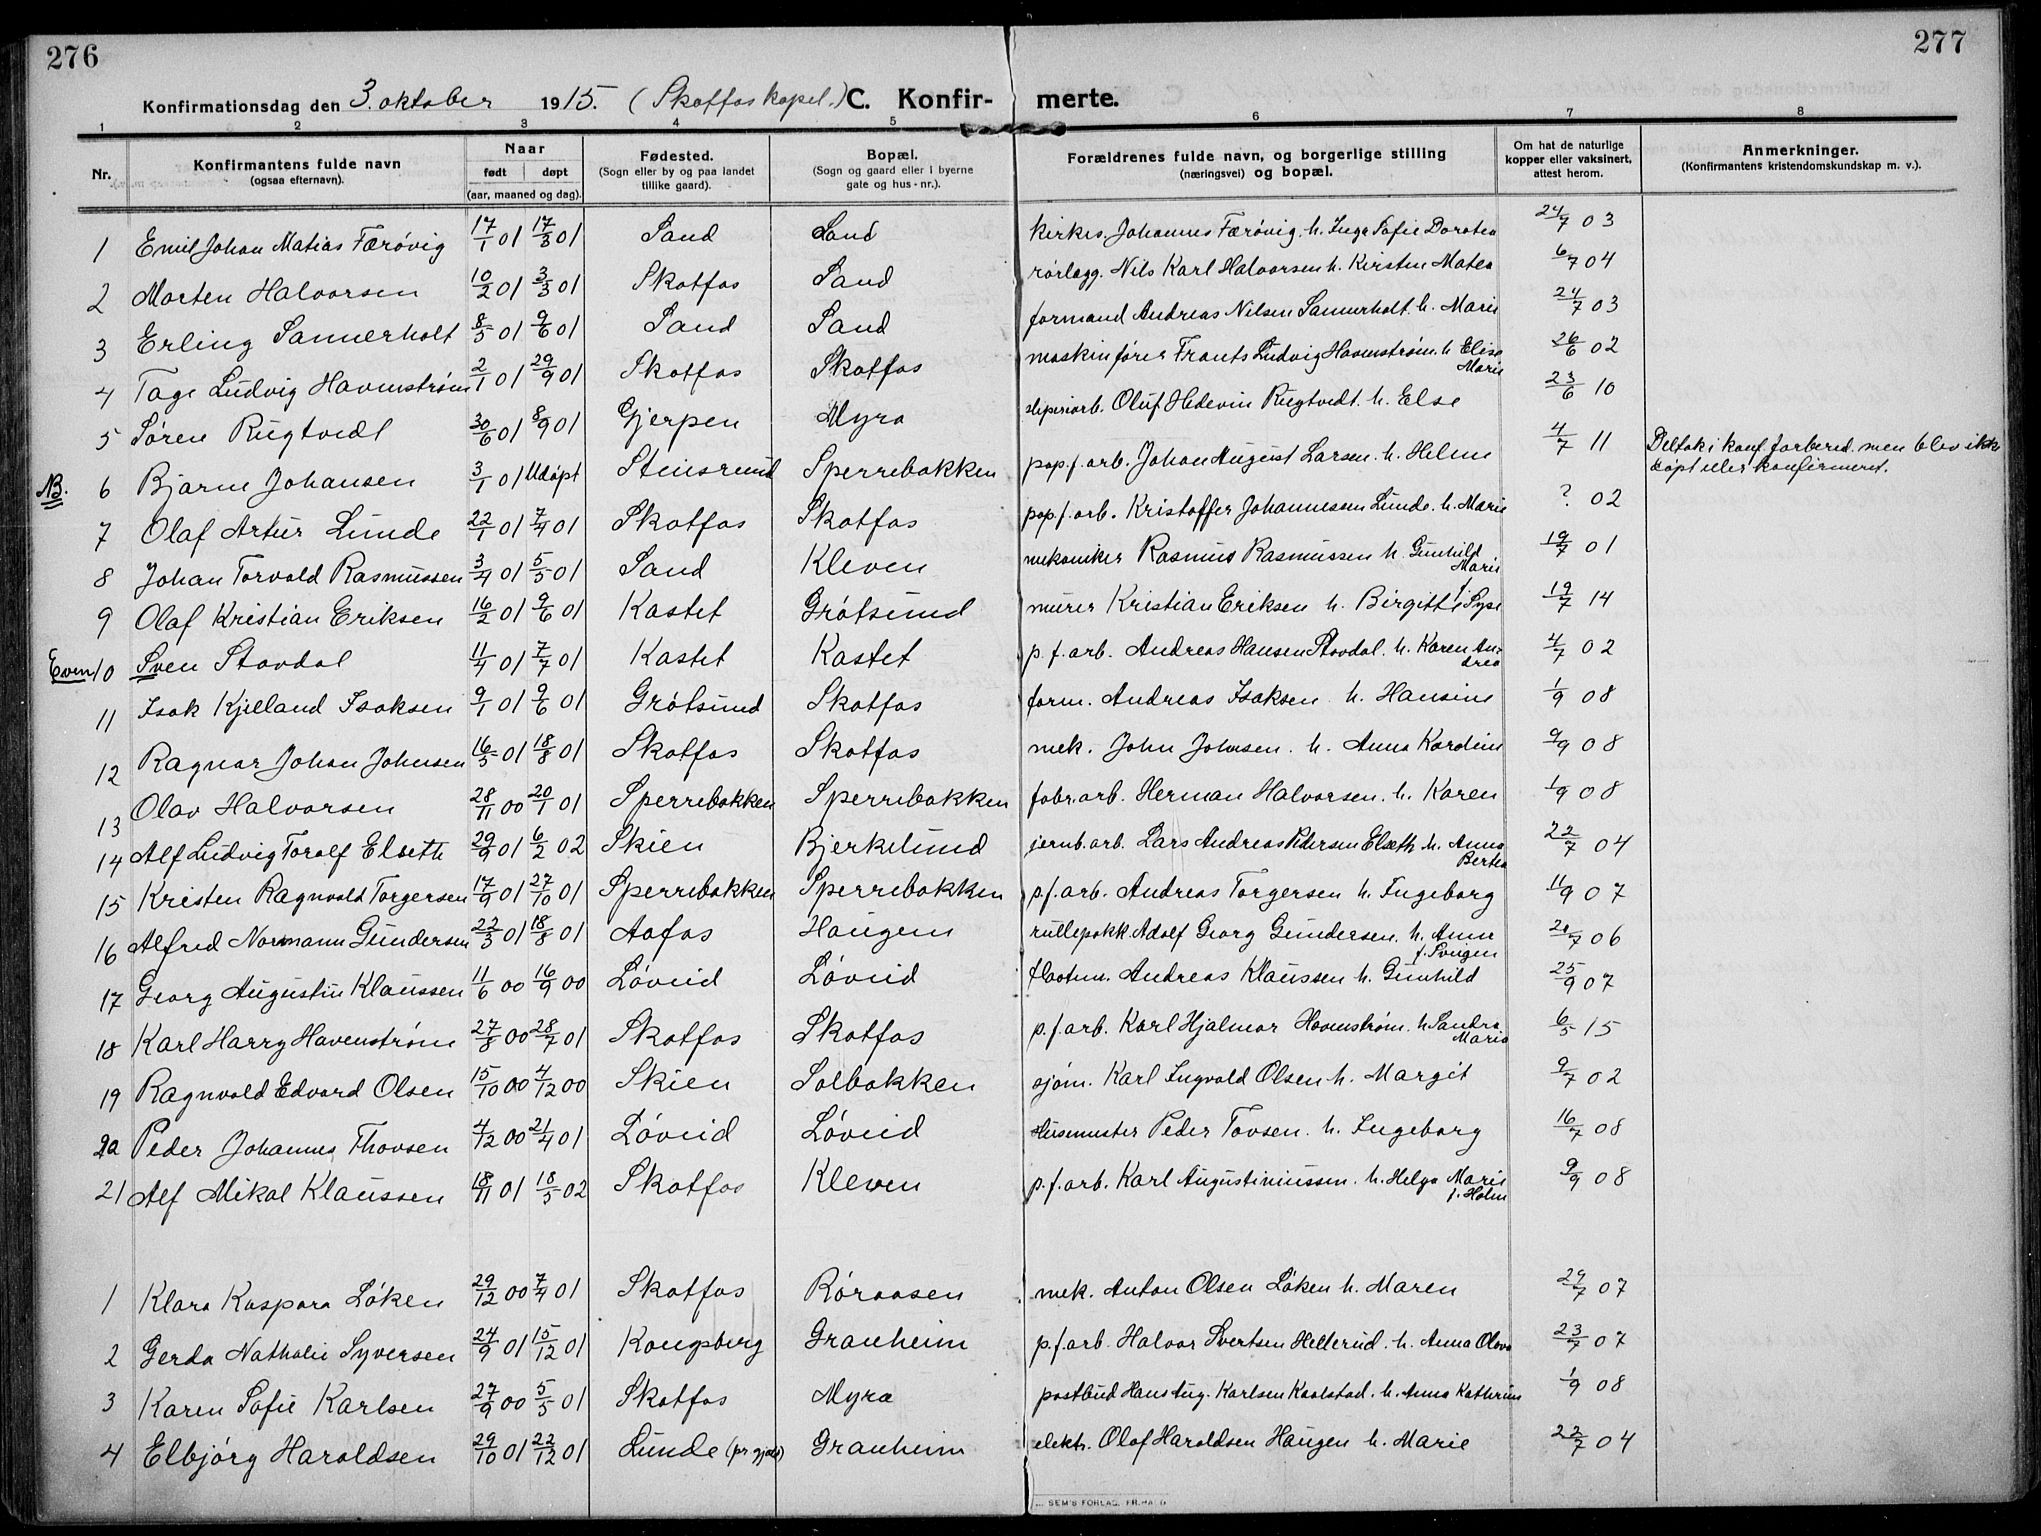 276
277
Konfirmationsdag den 3. oktober 1915. (Skotfos kapel.) C. Konfir- merte.
1 2 3 4 5 6 7 8
Nr.
Konfirmantens fulde navn
(ogsaa efternavn).
Naar
født døpt
(aar, maaned og dag).
Fødested.
(Sogn eller by og paa landet
tillike gaard).
Bopæl.
(Sogn og gaard eller i byerne
gate og hus-nr.).
Forældrenes fulde navn, og borgerlige stilling
(næringsvei) og bopæl.
Om hat de naturlige
kopper eller vaksinert,
attest herom.
Anmerkninger.
(Konfirmantens kristendomskundskap m. v.).
1 Emil Johan Matias Færøvig 17/1 01 17/3 01 Sand Sand kirkes. Johannes Færøvig. h. Inga Sofie Dorotea 24/7 03
2 Morten Halvorsen 10/2 01 3/3 01 Skotfos Sand rørlegg. Nils Karl Halvorsen h. Kirsten Matea 6/7 04
3 Erling Sannerholt 8/5 01 9/6 01 Sand Sand formand Andreas Nilsen Sannerholt. h. Marie 24/7 03
4 Tage Ludvig Havenstrøm 2/1 01 29/9 01 Skotfos Skotfos maskinfører Frants Ludvig Havenstrøm. h. Elise Marie 26/6 02
5 Søren Rugtvedt 30/6 01 8/9 01 Gjerpen Myra sliperiarb. Oluf Hedevin Rugtvedt. h. Else 23/6 10
NB. 6 Bjarne Johansen 3/1 01 Udøpt Stensrund Sperrebakken pap.f.arb. Johan August Larsen. h. Helene 4/7 11 Deltok i konf.forbered. men blev ikke
døpt eller konfirmeret.
7 Olaf Artur Lunde 22/1 01 7/4 01 Skotfos Skotfos pap.f.arb. Kristoffer Johannessen Lunde. h. Marie ? 02
8 Johan Torvald Rasmussen 3/4 01 5/5 01 Sand Kleven mekaniker Rasmus Rasmussen h. Gunhild Marie 19/7 01
9 Olaf Kristian Eriksen 16/2 01 9/6 01 Kastet Grøtsund murer Kristian Eriksen h. Birgitte f. Lyse 19/7 14
Even 10 Sven Stavdal 11/4 01 7/7 01 Kastet Kastet p.f.arb. Andreas Hansen Stavdal. h. Karen Andrea 4/7 02
11 Isak Kjelland Isaksen 9/1 01 9/6 01 Grøtsund Skotfos form. Andreas Isaksen h. Hansine 1/9 08
12 Ragnar Johan Johnsen 16/5 01 18/8 01 Skotfos Skotfos mek. John Johnsen. h. Anna Kardine 9/9 08
13 Olav Halvorsen 28/11 00 20/1 01 Sperrebakken Sperrebakken fabr.arb. Herman Halvorsen. h. Karen 1/9 08
14 Alf Ludvig Toralf Elseth 29/9 01 6/2 02 Skien Bjerkelund jernb.arb. Lars Andreas Pedersen Elseth h. Anna Bertea 22/7 04
15 Kristen Ragnvald Torgersen 17/9 01 27/10 01 Sperrebakken Sperrebakken p.f.arb. Andreas Torgersen h. Ingeborg 11/9 07
16 Alfred Normann Gundersen 22/3 01 18/8 01 Aafos Haugen rullepakk. Adolf Georg Gundersen. h. Anne f. Svugen 20/7 06
17 Georg Augustin Klaussen 11/6 00 16/9 00 Løveid Løveid fløtem. Andreas Klaussen h. Gunhild 25/9 07
18 Karl Harry Havenstrøm 27/8 00 28/7 01 Skotfos Skotfos p.f.arb. Karl Hjalmar Havenstrøm. h. Sandra Maria 6/5 15
19 Ragnvald Edvard Olsen 15/10 00 4/12 00 Skien Solbakken sjøm. Karl Ingvald Olsen h. Margit 9/7 02
20 Peder Johannes Thovsen 4/12 00 21/4 01 Løveid Løveid slusemester Peder Tovsen. h. Ingeborg 16/7 08
21 Alf Mikal Klaussen 18/11 01 18/5 02 Skotfos Kleven p.f.arb. Karl Augustiniussen. h. Helga Marie f. Holm 9/9 08
1 Klara Kaspara Løken 29/12 00 7/4 01 Skotfos Røraasen mek. Anton Olsen Løken h. Maren 29/7 07
2 Gerda Nathalie Syversen 24/9 01 15/12 01 Kongsberg Granheim p.f.arb. Halvor Svertsen Hellerud. h. Anna Olava 23/7 07
3 Karen Sofie Karlsen 27/9 00 5/5 01 Skotfos Myra postbud Hans Aug. Karlsen Kaalstad. h. Anna Kathrine 1/9 08
4 Elbjørg Haraldsen 29/10 01 22/12 01 Lunde Granheim elektr. Olaf Haraldsen Haugen h. Marie 22/7 04
SEM'S FORLAG, FR.HALD